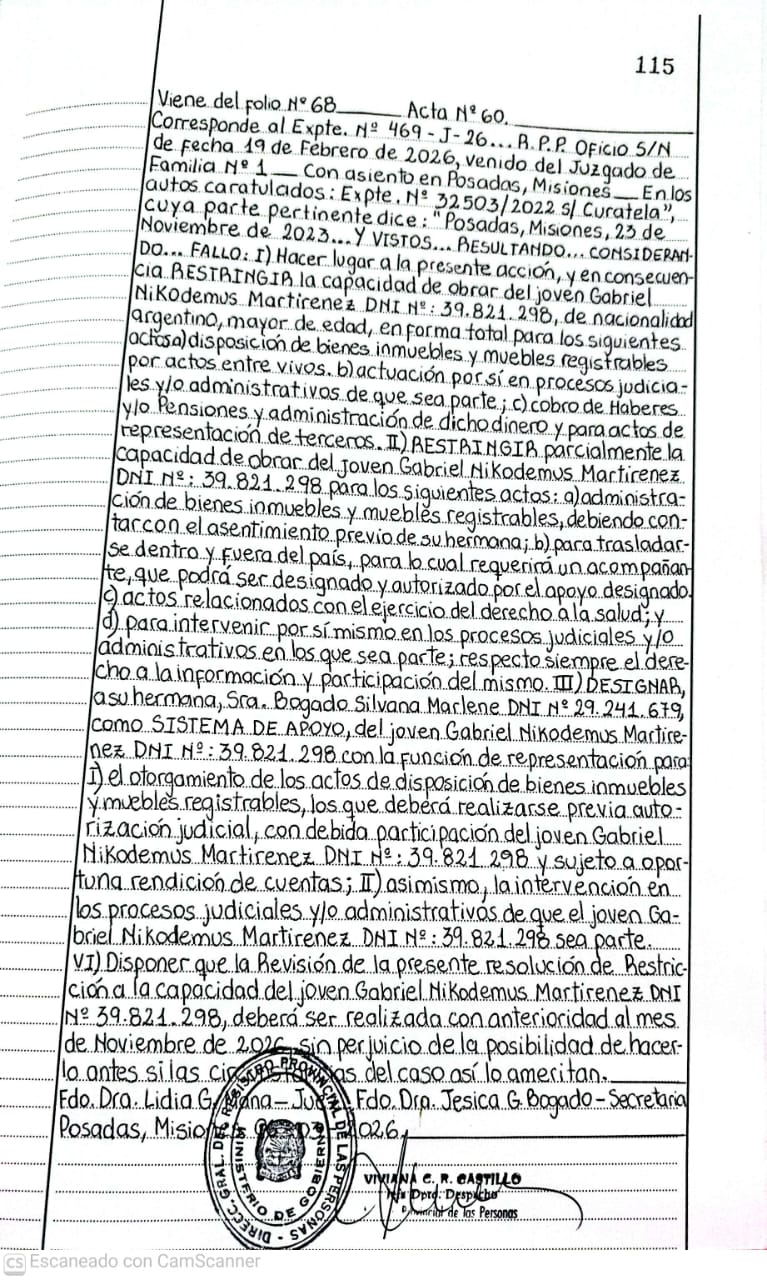 115
Viene del folio Nº 68____ Acta Nº 60.____
Corresponde al Expte. Nº 469-J-26... R.P.P. Oficio S/N
de fecha 19 de Febrero de 2026, venido del Juzgado de
Familia Nº 1__ Con asiento en Posadas, Misiones__ En los
autos caratulados: Expte. Nº 32503/2022 s/ Curatela",
cuya parte pertinente dice: "Posadas, Misiones, 23 de
Noviembre de 2023... Y VISTOS... RESULTANDO... CONSIDERAN-
DO... FALLO: I) Hacer lugar a la presente acción, y en consecuen-
cia RESTRINGIR la capacidad de obrar del joven Gabriel
Nikodemus Martirenez DNI Nº: 39.821.298, de nacionalidad
argentino, mayor de edad, en forma total para los siguientes
actos a) disposición de bienes inmuebles y muebles registrables
por actos entre vivos. b) actuación por sí en procesos judicia-
les y/o administrativos de que sea parte; c) cobro de Haberes
y/o Pensiones y administración de dicho dinero y para actos de
representación de terceros. II) RESTRINGIR parcialmente la
capacidad de obrar del joven Gabriel Nikodemus Martirenez
DNI Nº: 39.821.298 para los siguientes actos: a) administra-
ción de bienes inmuebles y muebles registrables, debiendo con-
tar con el asentimiento previo de su hermana; b) para trasladar-
se dentro y fuera del país, para lo cual requerirá un acompañan
te, que podrá ser designado y autorizado por el apoyo designado.
c) actos relacionados con el ejercicio del derecho a la salud; y
d) para intervenir por sí mismo en los procesos judiciales y/o
administrativos en los que sea parte; respecto siempre el dere-
cho a la información y participación del mismo. III) DESIGNAR,
a su hermana, Sra. Bogado Silvana Marlene DNI Nº 29.241.679,
como SISTEMA DE APOYO, del joven Gabriel Nikodemus Martire-
nez DNI Nº: 39.821.298 con la función de representación para:
I) el otorgamiento de los actos de disposición de bienes inmuebles
y muebles registrables, los que deberá realizarse previa auto-
rización judicial, con debida participación del joven Gabriel
Nikodemus Martirenez DNI Nº: 39.821.298 y sujeto a opor-
tuna rendición de cuentas; II) asimismo, la intervención en
los procesos judiciales y/o administrativos de que el joven Ga-
briel Nikodemus Martirenez DNI Nº: 39.821.298 sea parte.
VI) Disponer que la Revisión de la presente resolución de Restric-
ción a la capacidad del joven Gabriel Nikodemus Martirenez DNI
Nº 39.821.298, deberá ser realizada con anterioridad al mes
de Noviembre de 2026, sin perjuicio de la posibilidad de hacer-
lo antes si las del caso así lo ameritan.____
Fdo. Dra. Lidia G. Fdo. Dra. Jesica G. Bogado - Secretaria
Posadas,
DIRECC. GRAL. DEL REGISTRO PROVINCIAL DE LAS PERSONAS
MINISTERIO DE GOBIERNO
VIVIANA C. R. CASTILLO
Dpto. Despacho
Provincial de las Personas
CS Escaneado con CamScanner